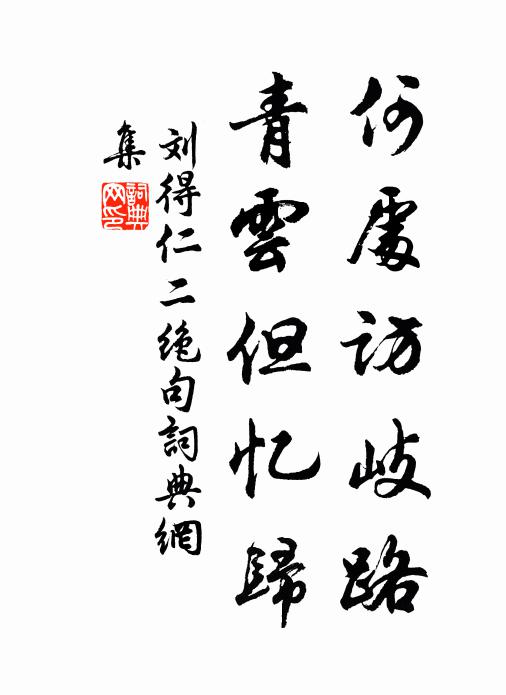 何處访岐路
青雲但忆歸
刘得仁二绝句詞典網
集
詞典网印